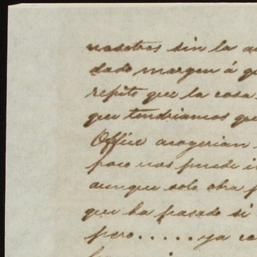 nosotros sin la a
dado margen á q
repite que la cosa
que tendriamos que
Office acogerian
poco nos puede i
aunque solo obra p
que ha pasado si
pero.....ya co